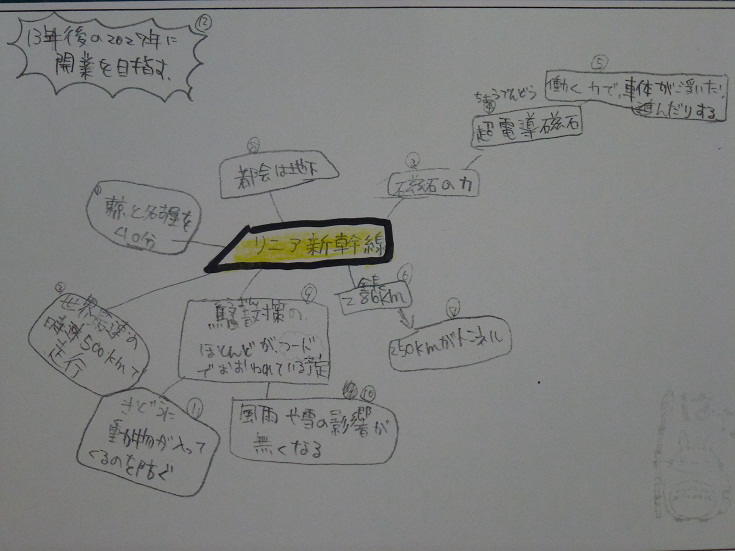 ⑫
13年後の2027年に
開業を目指す。
⑤
働く力で、車体が浮いたり
進んだりする
ちょうでんどう
④
超電導磁石
③
磁石の力
⑧
都会は地下
①
東京と名古屋を
40分
リニア新幹線
②
世界最速の
時速500kmで
走行
⑥
全長
286km
⑦
250kmがトンネル
⑨
騒音対策の
ほとんどが、フード
でおおわれている
⑩
風雨や雪の影響が
無くなる
⑪
動物が入って
くるのを防ぐ